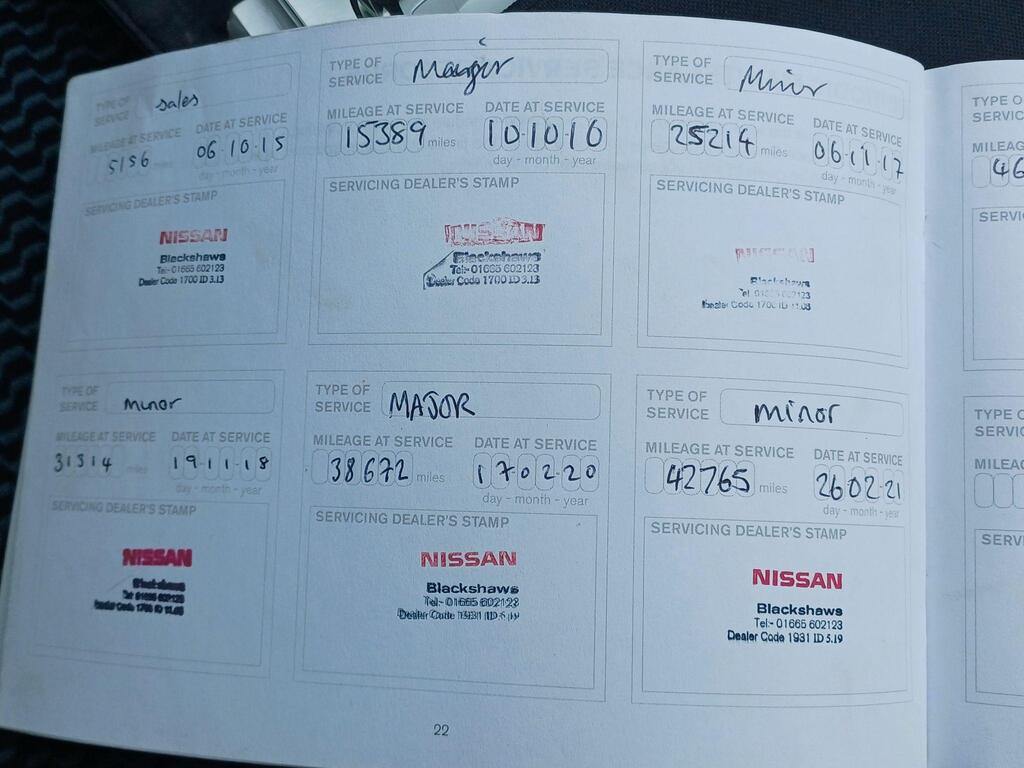 TYPE OF SERVICE sales
MILEAGE AT SERVICE DATE AT SERVICE
5156 miles 06 10 15
day - month - year
SERVICING DEALER'S STAMP
NISSAN
Blackshaws
Tel:- 01665 602123
Dealer Code 1700 ID 3.13
TYPE OF SERVICE
MILEAGE AT SERVICE DATE AT SERVICE
15389 miles 10 10 16
day - month - year
SERVICING DEALER'S STAMP
NISSAN
Blackshaws
Tel:- 01665 602123
Dealer Code 1700 ID 3.13
TYPE OF SERVICE Minor
MILEAGE AT SERVICE DATE AT SERVICE
25214 miles 06 11 17
day - month - year
SERVICING DEALER'S STAMP
NISSAN
Blackshaws
Tel: 01665 602123
Dealer Code 1700 ID 11.08
TYPE OF SERVICE minor
MILEAGE AT SERVICE DATE AT SERVICE
31314 miles 19 11 18
day - month - year
SERVICING DEALER'S STAMP
NISSAN
Blackshaws
Tel: 01665 602123
Dealer Code 1700 ID 11.08
TYPE OF SERVICE MAJOR
MILEAGE AT SERVICE DATE AT SERVICE
38672 miles 17 02 20
day - month - year
SERVICING DEALER'S STAMP
NISSAN
Blackshaws
Tel:- 01665 602123
Dealer Code 1931 ID 5.19
TYPE OF SERVICE minor
MILEAGE AT SERVICE DATE AT SERVICE
42765 miles 26 02 21
day - month - year
SERVICING DEALER'S STAMP
NISSAN
Blackshaws
Tel:- 01665 602123
Dealer Code 1931 ID 5.19
22
TYPE O
SERVIC
MILEAG
46
SERVIC
TYPE O
SERVIC
MILEAG
SERVI